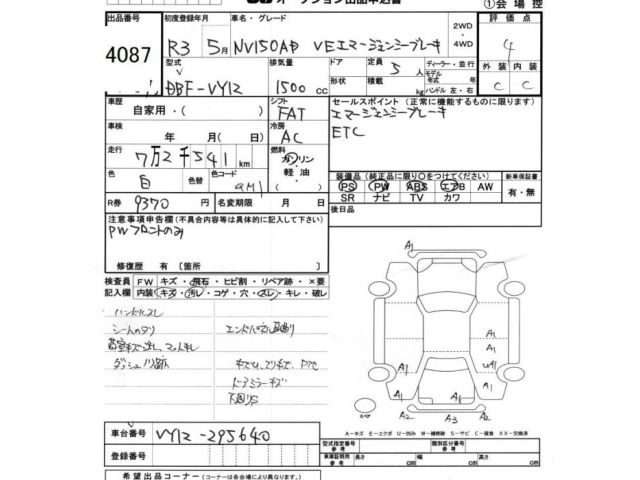 オークション出品申込書
①会場控
出品番号 4087
初度登録年月 R3 5月
車名・グレード NV150AD VEエマージェンシーブレーキ
2WD・4WD
評価点 4
型式 DBF-VY12
排気量 1500 cc
ドア 形状
定員 5 人
積載 kg
ディーラー・並行
モデル 年式
ハンドル 左・右
外装 内装
C C
車歴 自家用・( )
シフト FAT
セールスポイント (正常に機能するものに限ります)
エマージェンシーブレーキ
ETC
車検 年 月( )
冷房 AC
走行 7万2千541 km
燃料 ガソリン 軽油
色 白 色替 色コード QM1
装備品(純正品に限り○をつけてください)
新車保証書
PS PW ABS エアB AW
SR ナビ TV カワ
有・無
R券 9370 円
名変期限 月 日
後日品
注意事項申告欄(不具合内容等は具体的に記入して下さい)
PWフロントのみ
修復歴 有 [箇所 ]
検査員記入欄 FW キズ・飛石・ヒビ割・リペア跡・×要
内装 キズ・汚レ・コゲ・穴・スレ・キレ・破レ
ハンドルスレ
エンドパネル曲り
ドアミラーキズ
下回りS
A1
A1
A1
A1
A1
A1
A1
A2 A3 A2
スペア
A-キズ E-エクボ U-凹み W-補修跡 S-サビ C-腐食 XX-交換済
車台番号 VY12-295640
登録番号
型式指定番号 参考
類別区分番号 参考
車庫証明用 参考
長さ cm 幅 cm 高さ cm
希望出品コーナー(会場により異なります)